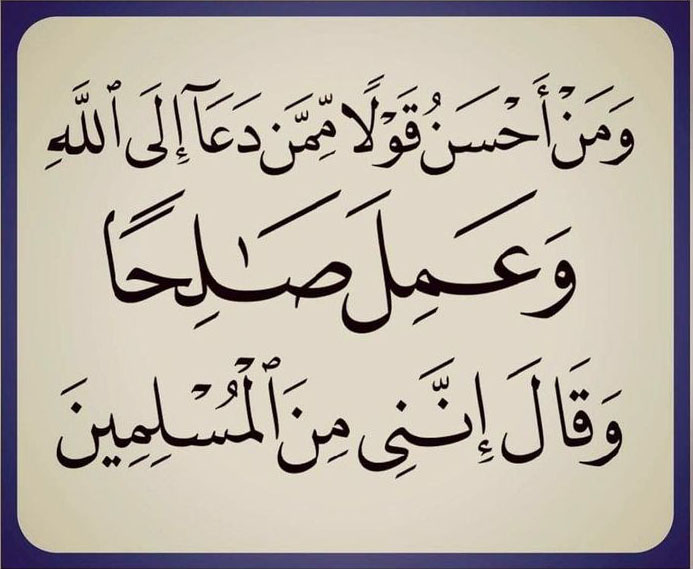 وَمَنْ أَحْسَنُ قَوْلًا مِّمَّن دَعَآ إِلَى ٱللَّهِ
وَعَمِلَ صَٰلِحًا
وَقَالَ إِنَّنِى مِنَ ٱلْمُسْلِمِينَ